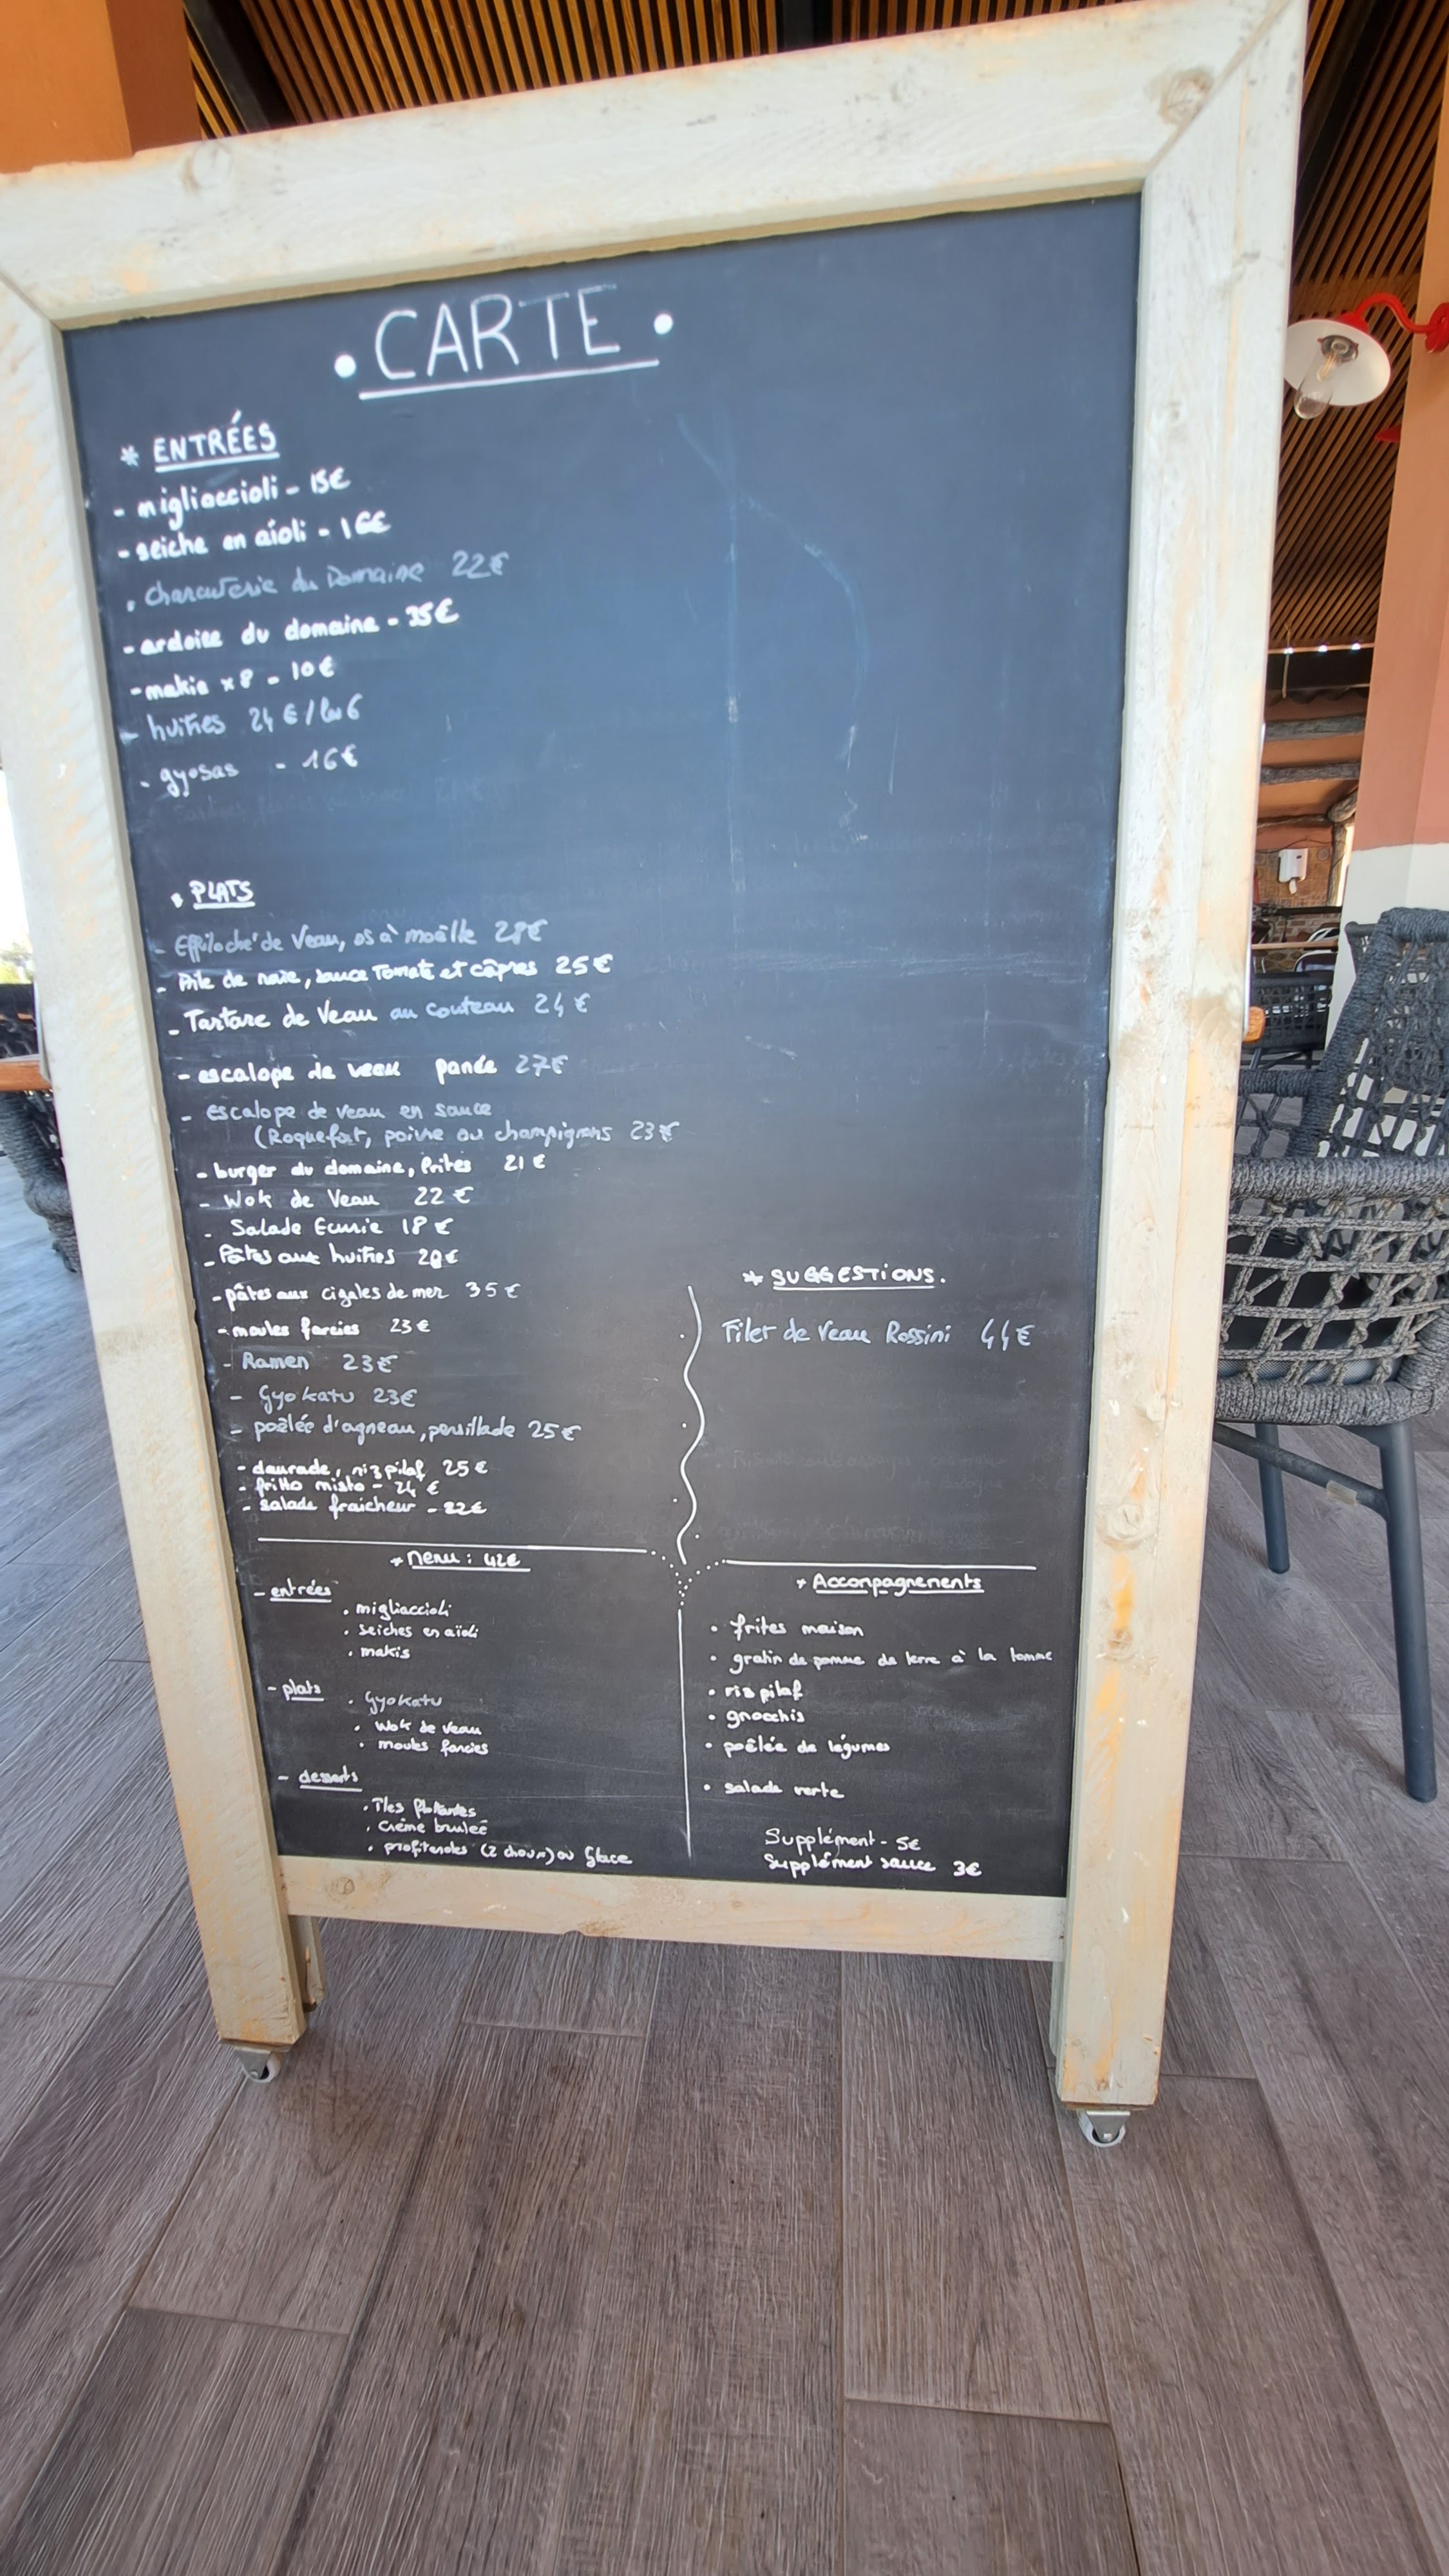 • CARTE •
* ENTRÉES
- migliaccioli - 15€
- seiche en aïoli - 16€
. Charcuterie du Domaine 22€
- ardoise du domaine - 35€
- makis x8 - 10€
- huitres 24€/les 6
- gyosas - 16€
• PLATS
- Effiloché de Veau, os à moëlle 28€
- Aile de raie, sauce Tomate et câpres 25€
- Tartare de Veau au couteau 24€
- escalope de veau panée 27€
- escalope de veau en sauce
(Roquefort, poivre ou champignons 23€
- burger du domaine, frites 21€
- Wok de Veau 22€
- Salade Ecurie 18€
- Pâtes aux huitres 20€
- pâtes aux cigales de mer 35€
- moules farcies 23€
- Ramen 23€
- Gyokatu 23€
- poêlée d'agneau, persillade 25€
- daurade, riz pilaf 25€
- fritto misto - 24€
- salade fraicheur - 22€
* SUGGESTIONS.
Filet de Veau Rossini 44€
* Menu : 42€
- entrées
. migliaccioli
. seiches en aïoli
. makis
- plats
. Gyokatu
. Wok de Veau
. moules farcies
- desserts
. Iles flottantes
. Crème brulée
. profiteroles (2 choux) ou Glace
* Accompagnements
• frites maison
• gratin de pomme de terre à la tomme
• riz pilaf
• gnocchis
• poêlée de légumes
• salade verte
Supplément - 5€
Supplément sauce 3€